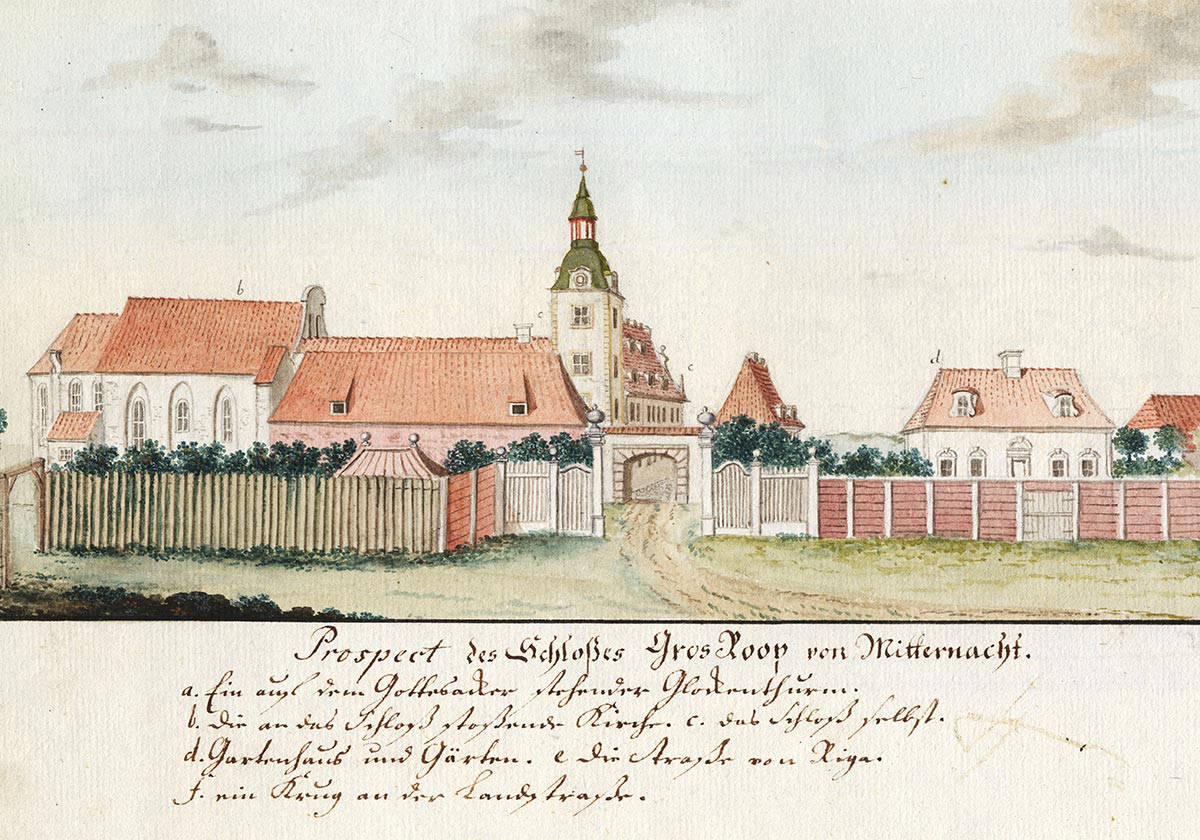 b
c
c
d
Prospect des Schloßes Gros Roop von Mitternacht.
a. Ein auf dem Gottesacker stehender Glockenthurm.
b. die an das Schloß stoßende Kirche. c. das Schloß selbst.
d. Gartenhaus und Gärten. e die Straße von Riga.
f. ein Krug an der Landstraße.